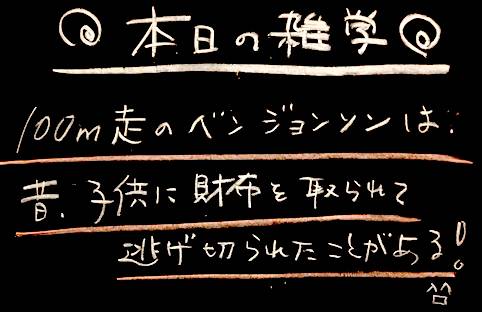 本日の雑学
100m走のベンジョンソンは、
昔、子供に財布を取られて
逃げ切られたことがある!